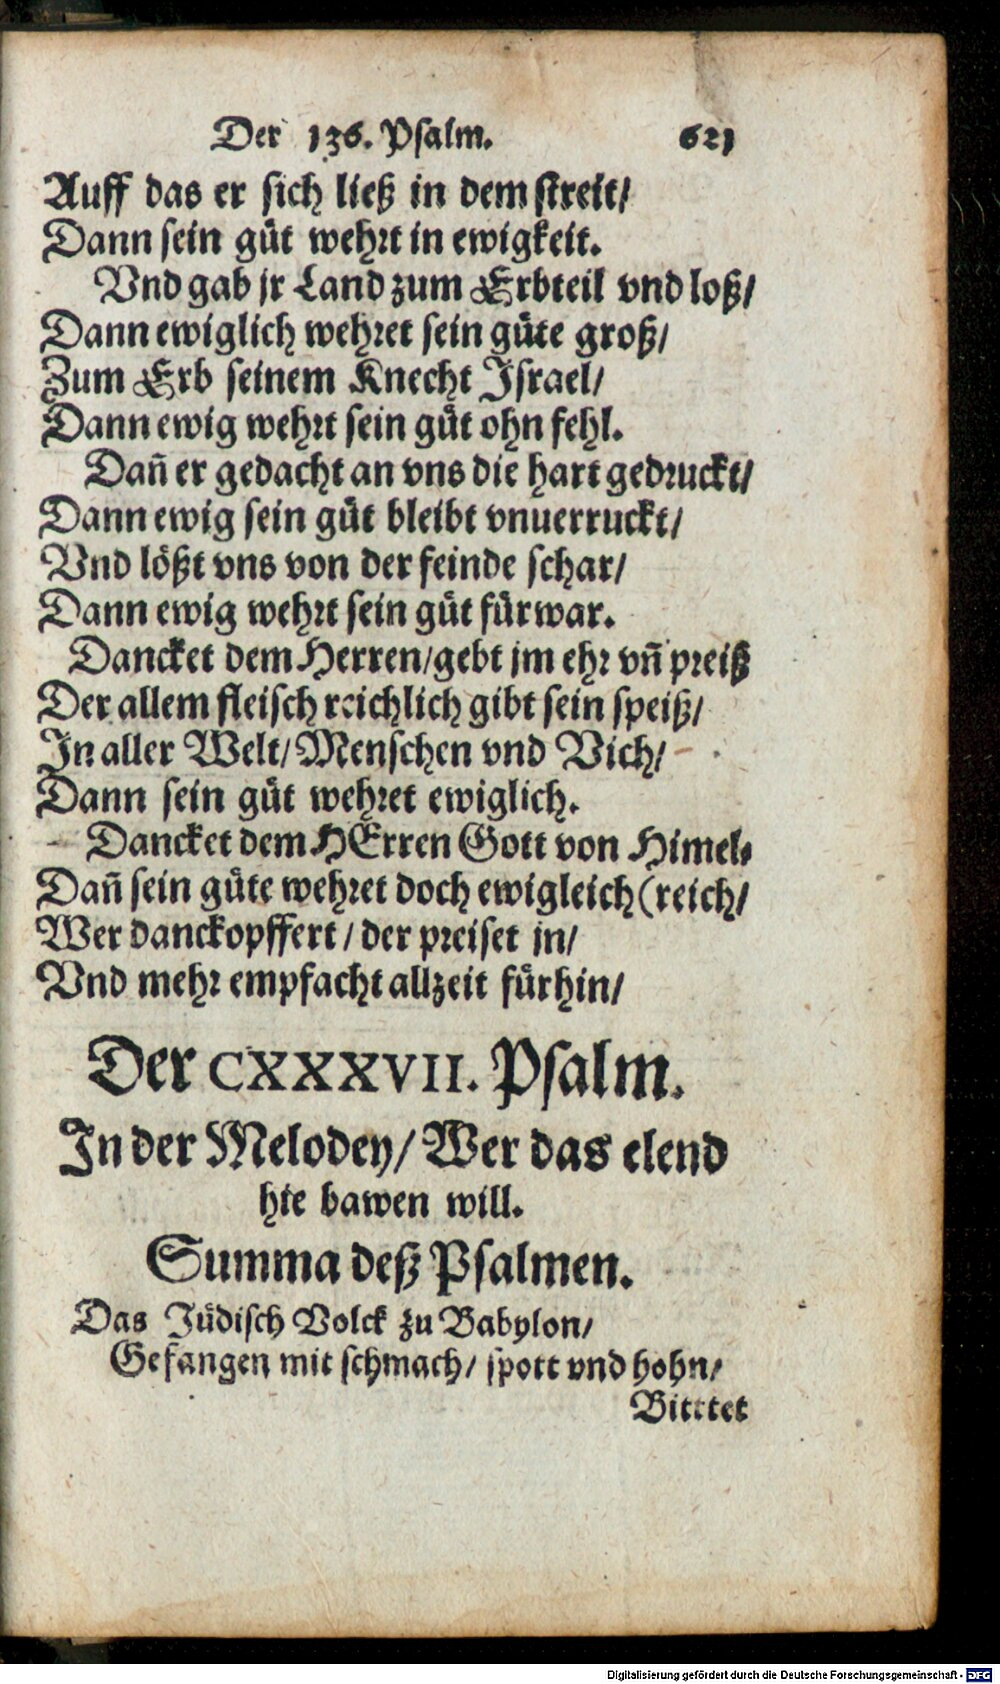 Der 136. Psalm. 621
Auff das er sich ließ in dem streit/
Dann sein güt wehrt in ewigkeit.
Vnd gab jr Land zum Erbteil vnd loß/
Dann ewiglich wehret sein güte groß/
Zum Erb seinem Knecht Israel/
Dann ewig wehrt sein güt ohn fehl.
Dañ er gedacht an vns die hart gedruckt/
Dann ewig sein güt bleibt vnuerruckt/
Vnd lößt vns von der feinde schar/
Dann ewig wehrt sein güt fürwar.
Dancket dem Herren/gebt jm ehr vñ preiß
Der allem fleisch reichlich gibt sein speiß/
In aller Welt/ Menschen vnd Vich/
Dann sein güt wehret ewiglich.
Dancket dem HErren Gott von Himel⸗
Dañ sein güte wehret doch ewigleich (reich/
Wer danckopffert / der preiset jn/
Vnd mehr empfacht allzeit fürhin/
Der CXXXVII. Psalm.
In der Melodey/ Wer das elend
hie bawen will.
Summa deß Psalmen.
Das Jüdisch Volck zu Babylon/
Gefangen mit schmach/ spott vnd hohn/
Bittet
Digitalisierung gefördert durch die Deutsche Forschungsgemeinschaft - DFG